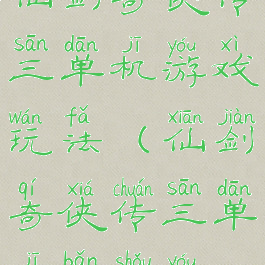 仙剑奇侠传
sān dān jī yóu xì
三单机游戏
wán fǎ xiān jiàn
玩法（仙剑
qí xiá chuán sān dān
奇侠传三单
jī bǎn shǒu yóu